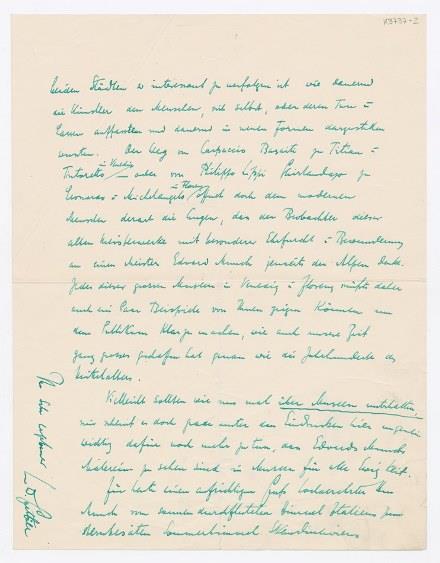 K3737-2
beiden Städten so interessant zu verfolgen ist wie dauernd
die Künstler den Menschen, sich selbst, oder deren Tun u
Lassen auffassten und dauernd in neuen Formen dargestellt
wurden. Der Weg von Carpaccio Basaiti zu Titian u
in Venedig
Tintoretto oder von Philippo Lippi Ghirlandajo zu
in Florenz
Leonardo u Michelangelo öffnet doch dem modernen
Menschen derart die Augen, das der Beobachter dieser
alten Meisterwerke mit besonderer Ehrfurcht u Bewunderung
an einen Meister Edvard Munch jenseits der Alpen denkt.
Jedes dieser grossen Museen in Venedig u Florenz müsste daher
auch ein Paar Beispiele von Ihnen zeigen können um
dem Publikum klar zu machen, wie auch unsere Zeit
ganz grosses geschaffen hat genau wie die Jahrhunderte des
Mittelalters.
Vielleicht sollten wir uns mal über Museen unterhalten,
mir scheint es doch ganz unter den Eindrücken hier ungemein
wichtig dafür noch mehr zu tun, das Edvard Munchs
Malereien zu sehen sind in Museen für alle Ewigkeit.
Für heute einen aufrichtigen Gruss hochverehrter Herr
Munch vom sonnendurchfluteten Himmel Italiens zum
Sommerhimmel Skandinaviens
Ihr sehr ergebener